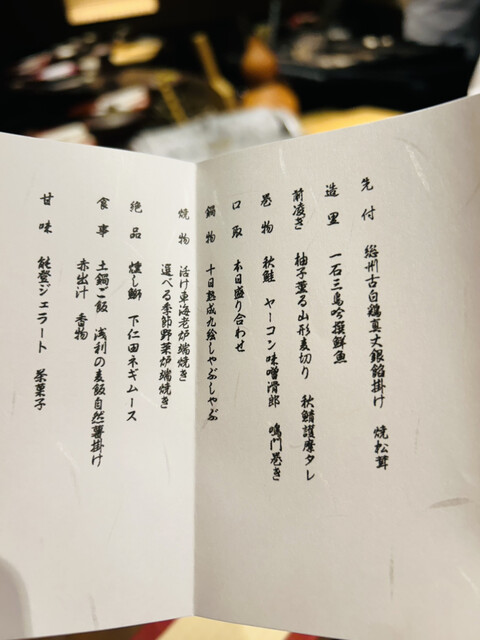 先付 総州古白鶏真丈銀餡掛け 焼松茸
造里 一石三鳥吟撰鮮魚
前凌ぎ 柚子薫る山形麦切り 秋鯖護摩タレ
巻物 秋鮭 ヤーコン味噌滑郎 鳴門巻き
口取 本日盛り合わせ
鍋物 十日熟成九絵しゃぶしゃぶ
焼物 活け車海老炉端焼き
選べる季節野菜炉端焼き
絶品 燻し鰤 下仁田ネギムース
食事 土鍋ご飯 浅利の麦飯自然薯掛け
赤出汁 香物
甘味 能登ジェラート 茶菓子